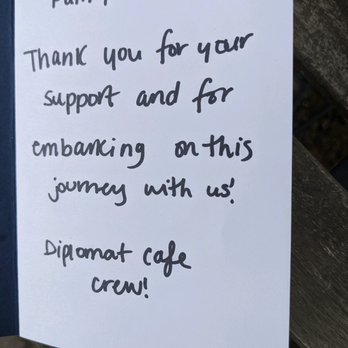 Thank you for your
support and for
embarking on this
journey with us!
Diplomat cafe
crew!